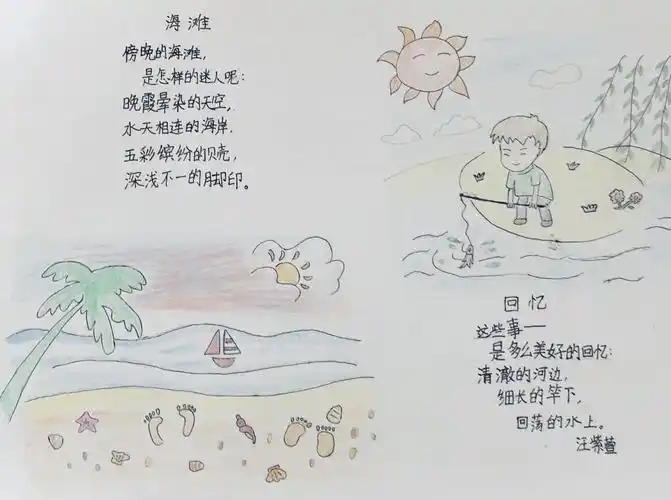 海滩
傍晚的海滩,
是怎样的迷人呢:
晚霞晕染的天空,
水天相连的海岸.
五彩缤纷的贝壳,
深浅不一的脚印。
回忆
这些事——
是多么美好的回忆:
清澈的河边,
细长的竿下,
回荡的水上。
汪紫萱